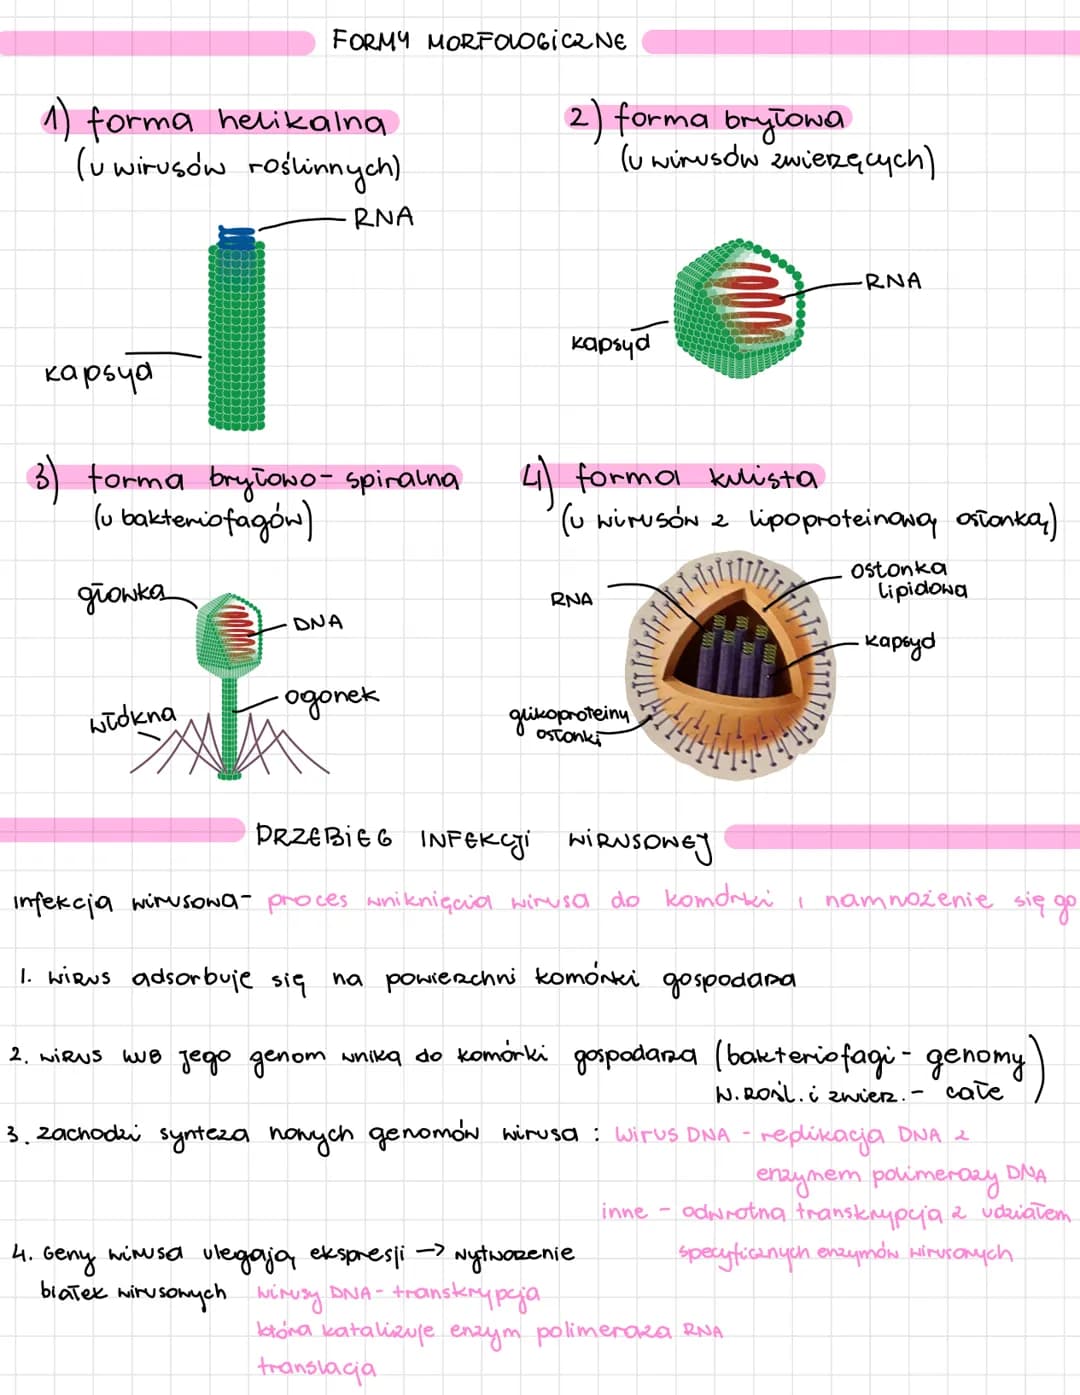 FORMY MORFOLOGICZNE
1) forma helikalna
(u wirusów roślinnych)
RNA
kapsyd
2) forma bryłowa
(u wirusów zwierzęcych)
RNA
kapsyd
3) forma bryłowo-spiralna
(u bakteriofagów)
główka
DNA
ogonek
włókna
4) forma kulista
(u wirusów z lipoproteinową osłonką)
RNA
osłonka
lipidowa
kapsyd
glikoproteiny
osłonki
PRZEBIEG INFEKCJI WIRUSOWEJ
infekcja wirusowa- proces wniknięcia wirusa do komórki i namnożenie się go
1. wirus adsorbuje się na powierzchni komórki gospodarza
2. wirus lub jego genom wnika do komórki gospodarza (bakteriofagi - genomy
w. rośl. i zwierz. - całe)
3. zachodzi synteza nowych genomów wirusa : wirus DNA - replikacja DNA z
enzymem polimerazy DNA
inne - odwrotna transkrypcja z udziałem
specyficznych enzymów wirusowych
4. Geny wirusa ulegają ekspresji -> wytworzenie
białek wirusowych wirusy DNA - transkrypcja
którą katalizuje enzym polimeraza RNA
translacja